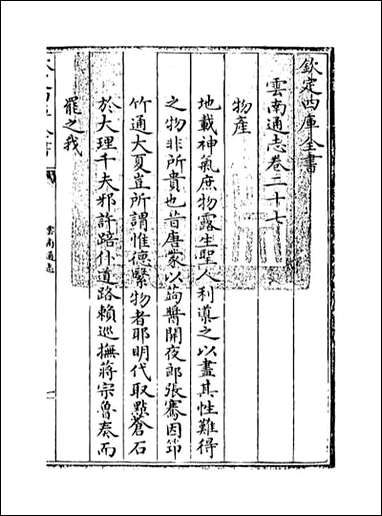 欽定四庫全書
雲南通志卷二十七
物產
地載神氣庶物露生聖人利導之以盡其性難得
之物非所貴也昔唐蒙以蒟醬開夜郎張騫因筇
竹通大夏豈所謂惟德繄物者耶明代取點蒼石
於大理千夫邪許踣仆道路賴巡撫蔣宗魯奏而
罷之我
雲南通志